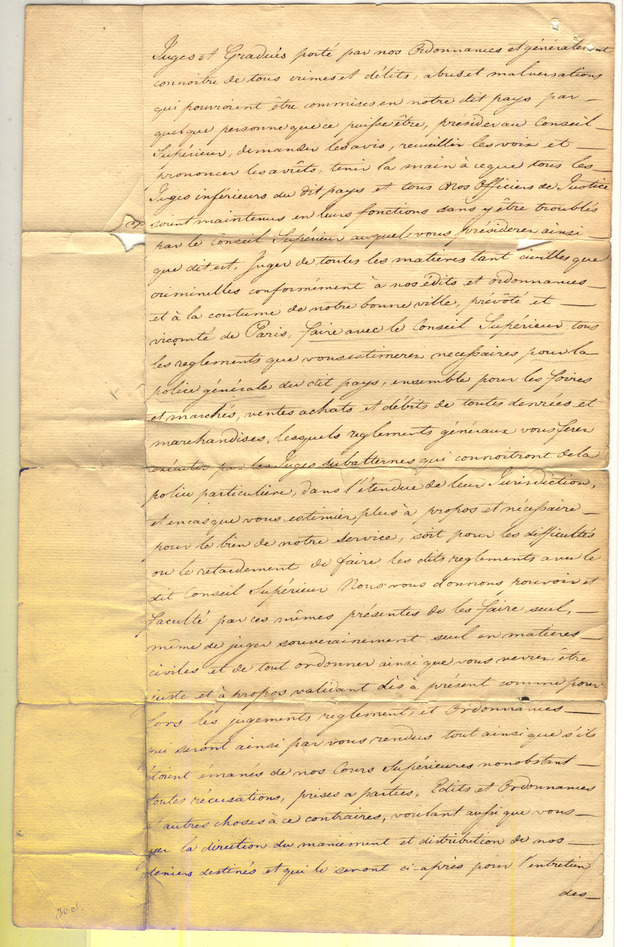 Juges et Gradués porté par nos Ordonnances et généralement
connoitre de tous crimes et délits, abus et malversations
qui pouroient être commises en nôtre dit pays par
quelque personne que ce puisse être, présider au Conseil
Supérieur, demander les avis, recueillir les voix et
prononcer les arrêts, tenir la main à ce que tous les
Juges inférieurs du dit pays et tous Nos Officiers de Justice
soient maintenus en leurs fonctions sans y être troublés
par le Conseil Supérieur auquel vous présiderez ainsi
que dit est, Juger de toutes les matières tant civilles que
criminelles conformément à nos édits et ordonnances
et à la coutume de notre bonne ville, prévôté et
vicomté de Paris, faire avec le Conseil Supérieur tous
les reglements que vous estimerez nécessaires pour la
police générale du dit pays, ensemble pour les foires
et marchés, ventes achats et débits de toutes denrées et
marchandises, lesquels reglements généraux vous ferez
exécuter par les Juges subalternes qui connoitront de la
police particulière, dans l'étendue de leur Jurisdiction,
et en cas que vous estimiez plus à propos et nécessaire
pour le bien de notre service, soit pour les difficultés
ou le retardement de faire les dits reglements avec le
dit Conseil Supérieur Nous vous donnons pouvoir et
faculté par ces mêmes présentes de les faire seul,
même de juger souverainement seul en matieres
civiles et de tout ordonner ainsi que vous verrez être
juste et à propos validant dès à présent comme pour
lors les jugements reglement, et Ordonnances
qui seront ainsi par vous rendus tout ainsi que s'ils
étoient émanés de nos Cours Supérieures nonobstant
toutes récusations, prises a parties, Edits et Ordonnances
et autres choses à ce contraires, voulant aussi que vous
la direction du maniement et distribution de nos
deniers destinés et qui le seront ci-après pour l'entretien
des